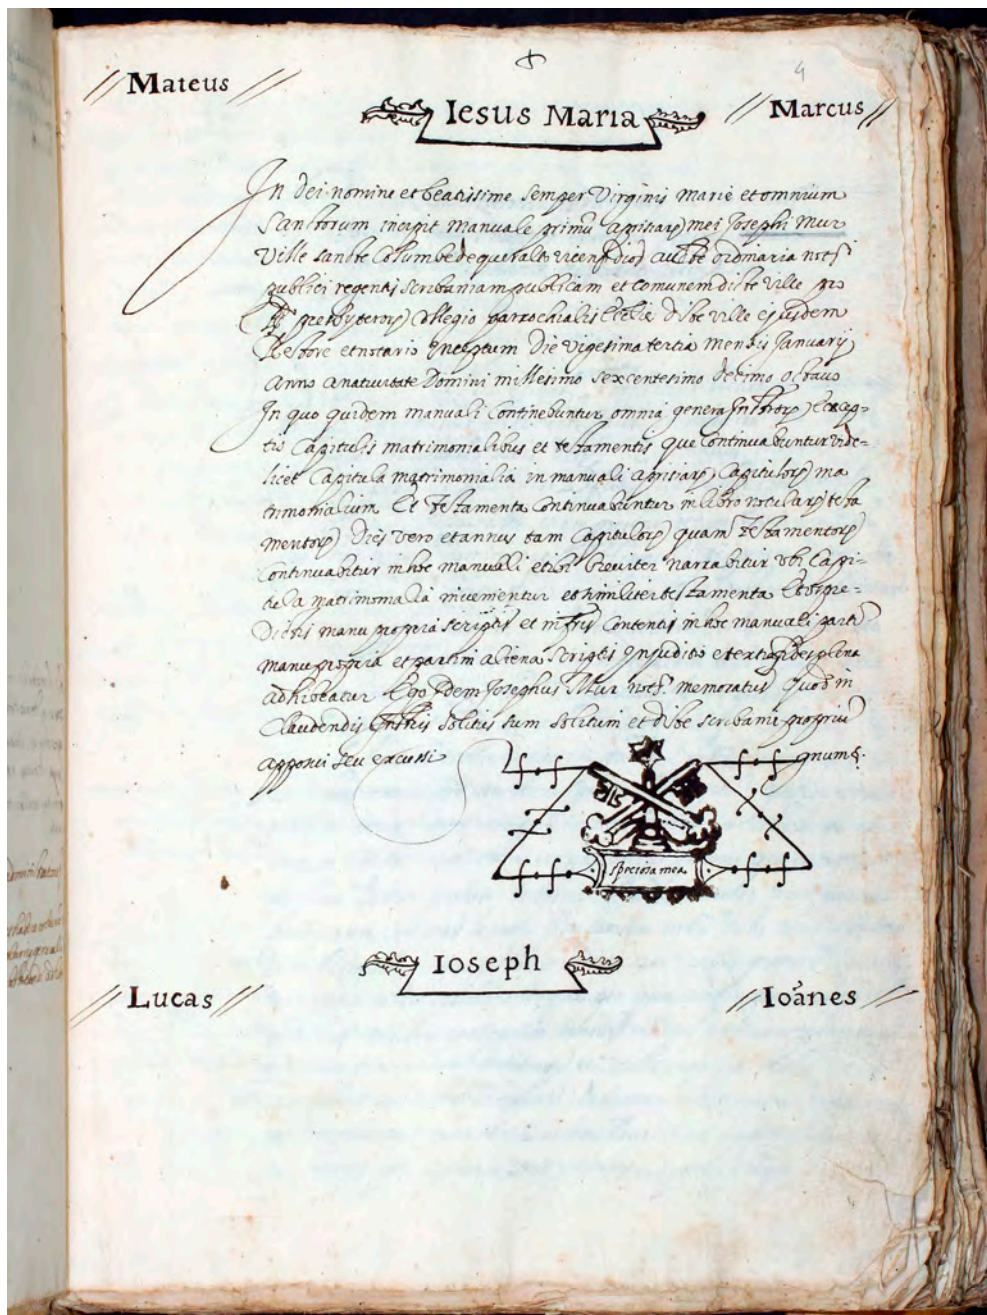 4
Mateus
Iesus Maria
Marcus
In dei nomine et beatissime semper Virginis Marie et omnium
Sanctorum incipit manuale primũ apisiarꝝ mei Josephi Mur
Ville sancte Columbe de queralto vicen̄ dioc̄ aucthe ordinaria notῖ
publici regentis scribaniam publicam et comunem dicte ville pro
presbyterorꝝ Collegio parrochialis Ecclie dicte ville ejusdem
Rectore et notario Inceptum Die vigesima tertia mensis Januarij
anno a nativitate Domini millesimo sexcentesimo decimo octavo
In quo quidem manuali continebuntur omnia genera Instrorꝝ Excep-
tis Capitulis matrimonialibus et testamentis que continuabuntur vide-
licet Capitula matrimonialia in manuali apisiarꝝ Capitulorꝝ ma
trimonialium Et Testamenta Continuabuntur in libro notularꝝ testa
mentorꝝ Dies vero et annus tam Capitulorꝝ quam Testamentorꝝ
Continuabitur in hoc manuali et ibi breviter narrabitur ubi Capi-
tula matrimonialia invenientur et similiter testamenta Et ut pre-
Dictis manu propria scriptis et infris contentis in hoc manuali partĩ
manu propria et partim aliena scriptis In juditio et extra fides plena
adhibeatur Ego Idem Josephus Mur notꝰ memoratus Quo in
Claudendis Instris solitus sum solitum et dicte scribanie propriũ
apposui seu excussi
gnum §.
speciosa mea.
Ioseph
Lucas
Ioãnes